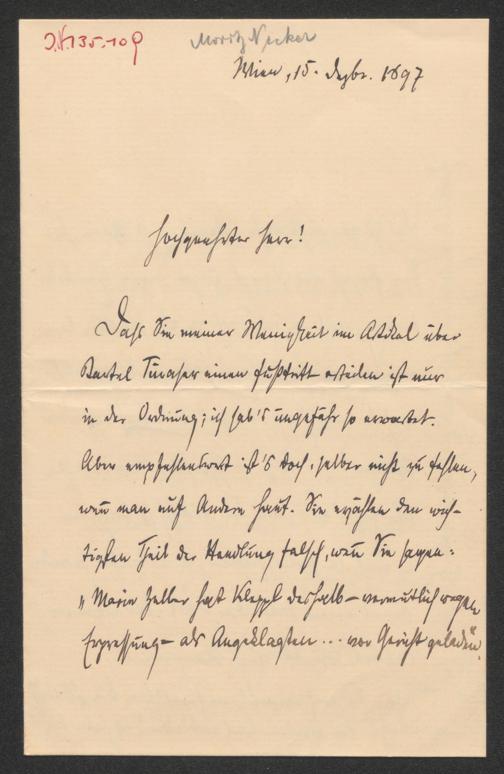 J.N.135.109
Moritz Necker
Wien, 15. Dezbr. 1897
Hochgeehrter Herr!
Dass Sie meiner Wenigkeit im Artikel über
Bartel Turaser einen Fußtritt erteilen ist nur
in der Ordnung; ich hab's ungefähr so erwartet.
Aber empfehlenswert ist's doch, selber nicht zu fehlen,
wenn man auf Andere haut. Sie erzählen den wich-
tigsten Theil der Handlung falsch, wenn Sie sagen:
„Marie Zeller hat Kleppl deshalb – vermutlich wegen
Erpressung – als Angeklagten ... vor Gericht geladen.